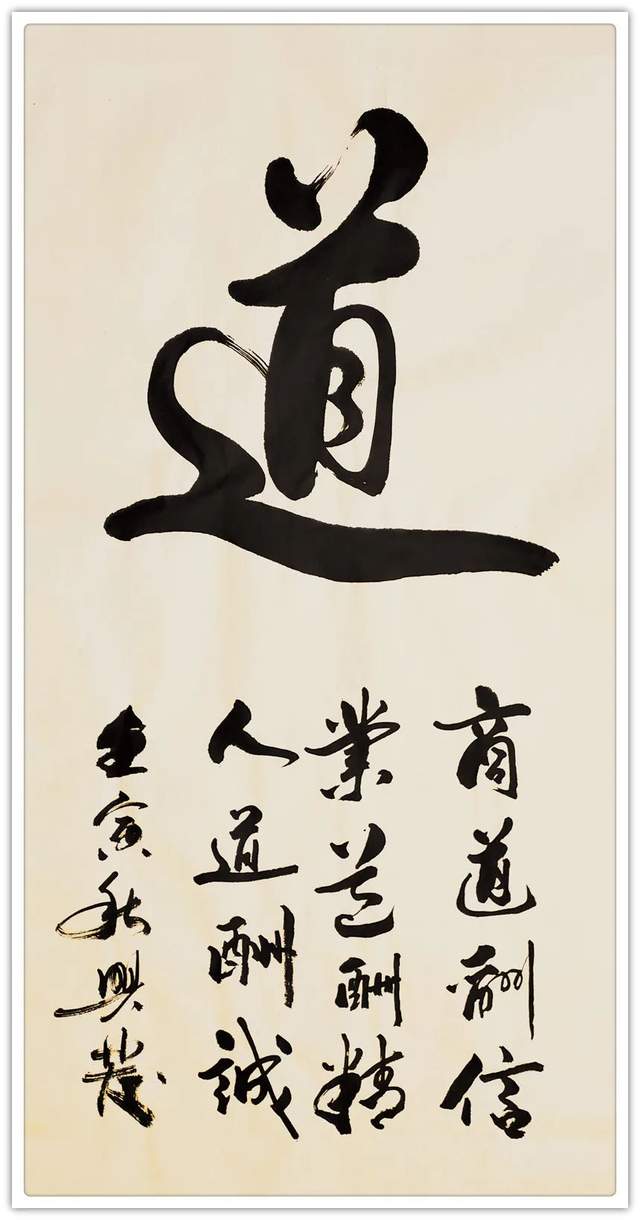 道
商道酬信
業道酬精
人道酬誠
壬寅秋興